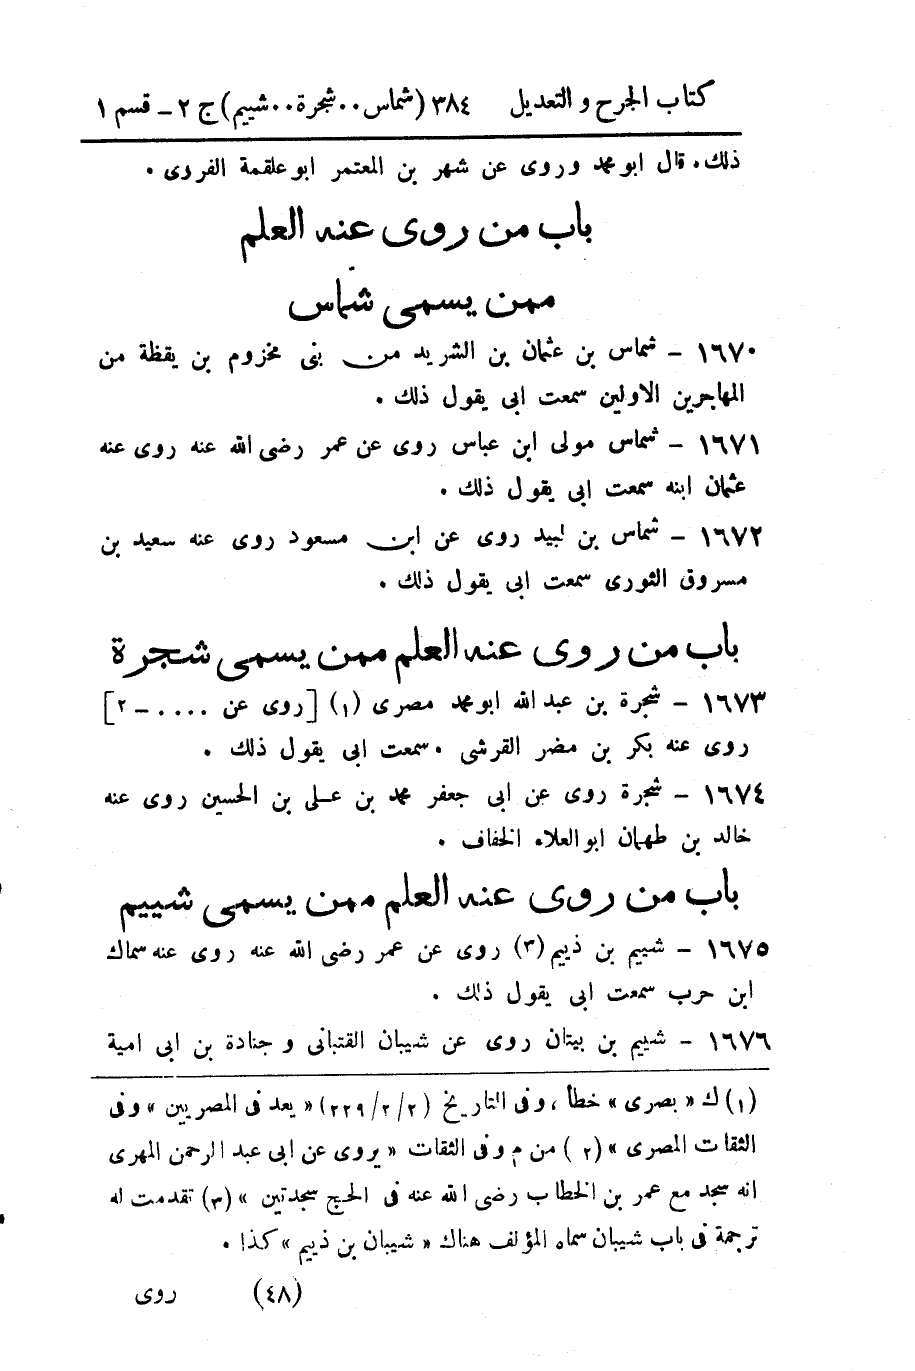 كتاب الجرح و التعديل ٣٨٤ (شماس٠٠شجرة٠٠شييم) ج ٢ – قسم ١
ذلك، قال ابو محمد وروى عن شهر بن المعتمر ابو علقمة الفروى .
باب من روى عنه العلم
ممن يسمى شمّاس
١٦٧٠ – شماس بن عثمان بن الشريد من بنى مخزوم بن يقظة من
المهاجرين الاولين سمعت ابى يقول ذلك .
١٦٧١ – شماس مولى ابن عباس روى عن عمر رضى الله عنه روى عنه
عثمان ابنه سمعت ابى يقول ذلك .
١٦٧٢ – شماس بن لبيد روى عن ابن مسعود روى عنه سعيد بن
مسروق الثورى سمعت ابى يقول ذلك .
باب من روى عنه العلم ممن يسمى شجرة
١٦٧٣ – شجرة بن عبد الله ابو محمد مصرى (١) [روى عن .... – ٢]
روى عنه بكر بن مضر القرشى . سمعت ابى يقول ذلك .
١٦٧٤ – شجرة روى عن ابى جعفر محمد بن على بن الحسين روى عنه
خالد بن طهمان ابو العلاء الخفاف .
باب من روى عنه العلم ممن يسمى شييم
١٦٧٥ – شييم بن ذييم (٣) روى عن عمر رضى الله عنه روى عنه سماك
ابن حرب سمعت ابى يقول ذلك .
١٦٧٦ – شييم بن بيتان روى عن شيبان القتبانى و جنادة بن ابى امية
(١) ك « بصرى » خطأ ، وفى التاريخ (٢/٢/٢٢٩) « يعد فى المصريين » وفى
الثقات المصرى » (٢) من م وفى الثقات « يروى عن ابى عبد الرحمن المهرى
انه سجد مع عمر بن الخطاب رضى الله عنه فى الحج سجدتين » (٣) تقدمت له
ترجمة فى باب شيبان سماه المؤلف هناك « شيبان بن ذييم » كذا .
(٤٨) روى